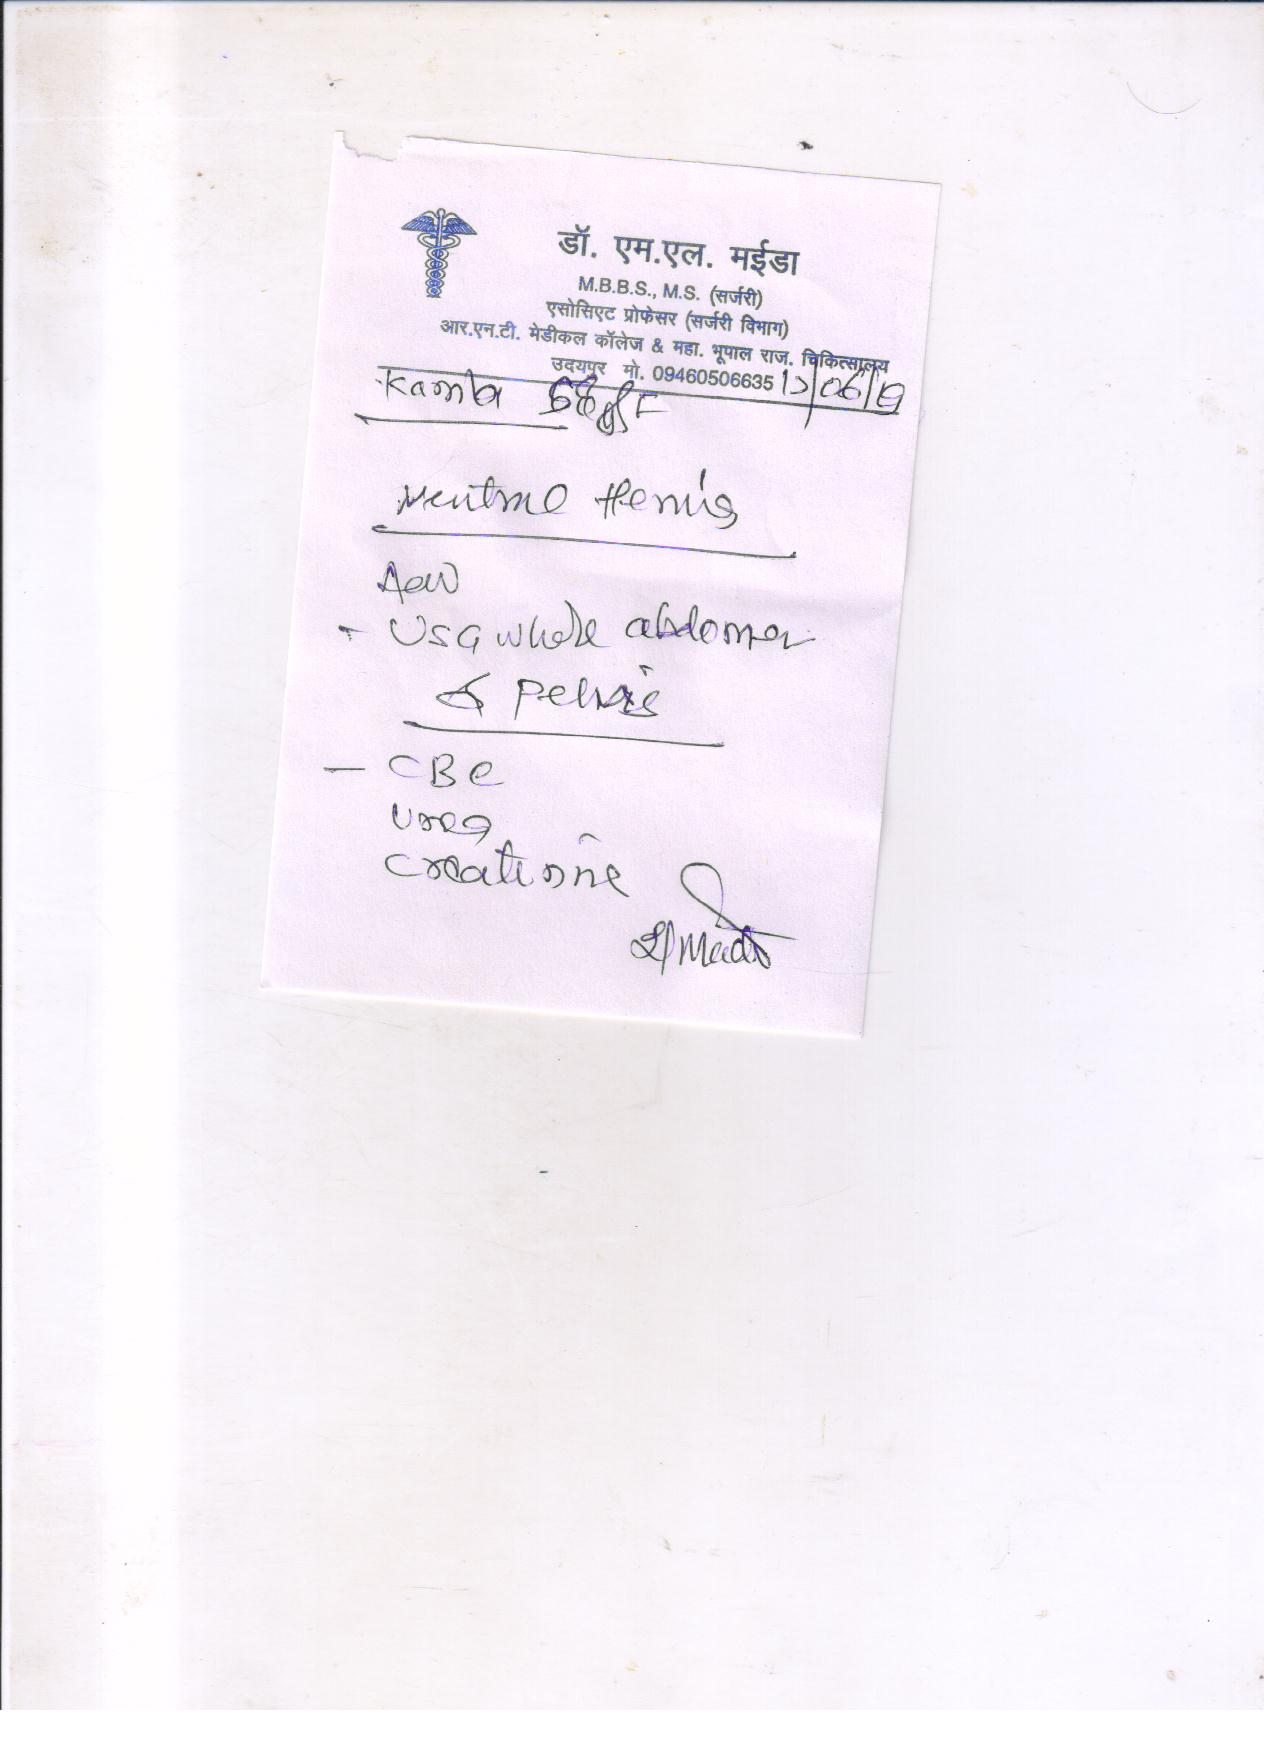 डॉ. एम.एल. मईडा
M.B.B.S., M.S. (सर्जरी)
एसोसिएट प्रोफेसर (सर्जरी विभाग)
आर.एन.टी. मेडीकल कॉलेज & महा. भूपाल राज. चिकित्सालय
उदयपुर मो. 09460506635
F
Hernia
Adv
- USG whole abdomen
& Pelvis
- CBC
Urea
Creatinine